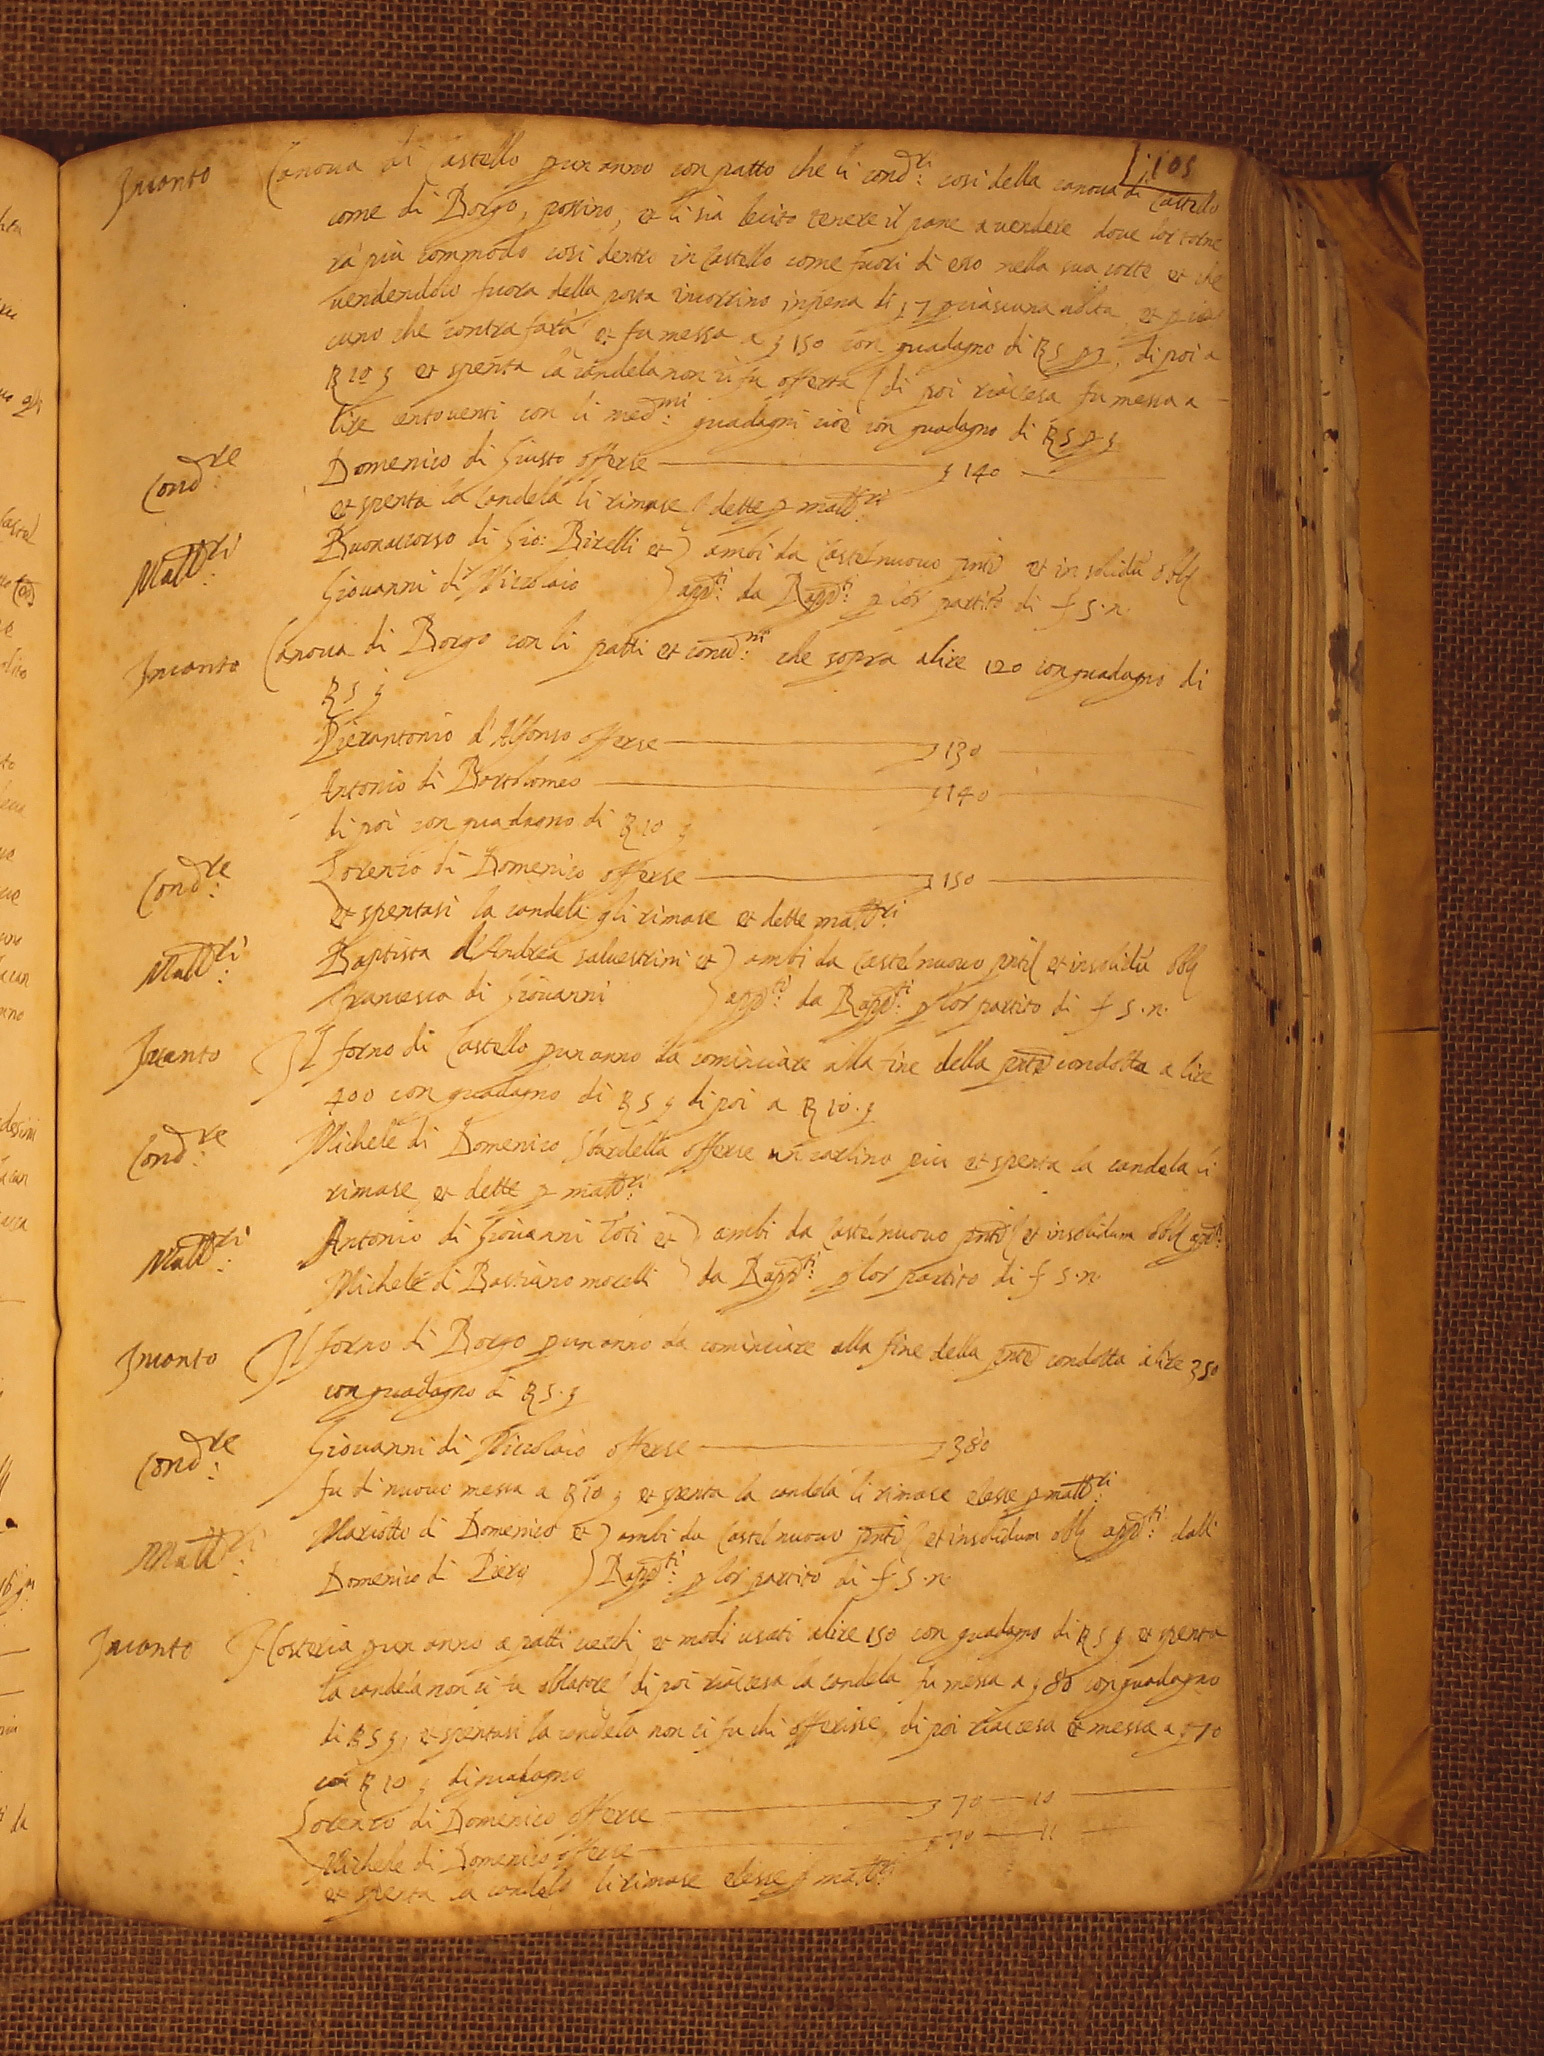 105
Incanto Canova di Castello per un anno con patto che li cond.ri così della canova di Castello
come di Borgo, possino, et li sia lecito tenere il pane a vendere dove lor torne
rà più commodo così dentro in Castello come fuori di esso nella sua corte et che
vendendolo fuora della posta incorrino in pena di 7 ciascuna volta et
cuno che contrafarà et fu messa a 150 con guadagno di 5 di poi a
10 et spenta la candela non ci fu offerta di poi riaccesa fu messa a
lire cento venti con li med.mi guadagni cioè con guadagno di 5
Cond.re Domenico di Giusto offerse 140
et spenta la candela li rimase dette p mall.ri
Mall.ri Buonaccorso di Gio: Birelli et ambi da Castelnuovo et in solidũ obl
Giovanni di Niccolaio app.ti da Rapp.ti p lor partito di f 5. n.
Incanto Canova di Borgo con li patti et che sopra a lire 120 con guadagno di
5
Pierantonio d'Alfonso offerse 130
Antonio di Bartolomeo 140
di poi con guadagno di 10
Cond.re Lorenzo di Domenico offerse 150
et spentasi la candela gli rimase et dette mall.ri
Mall.ri Baptista d'Andrea salvestrini et ambi da Castelnuovo et insolidũ obl
Francesco di Giovanni app.ti da Rapp.ti p lor partito di f 5. n.
Incanto Il forno di Castello p un anno da cominciare alla fine della pnte condotta a lire
400 con guadagno di 5 di poi a 10.
Cond.re Michele di Domenico Sbardella offerse un carlino più et spenta la candela li
rimase et dette p mall.ri
Mall.ri Antonio di Giovanni Toti et ambi da Castelnuovo et insolidum obl app.ti
Michele di Bastiano da Rapp.ti p lor partito di f 5. n.
Incanto Il forno di Borgo p un anno da cominciare alla fine della pnte condotta a lire 350
con guadagno di 5.
Cond.re Giovanni di Niccolaio offerse 380
fu di nuovo messa a 10 et spenta la candela li rimase elesse p mall.ri
Mall.ri Mariotto di Domenico et ambi da Castelnuovo et insolidum obl app.ti dalli
Domenico di Piero Rapp.ti p lor partito di f 5. n.
Incanto Hosteria p un anno a patti vecchi et modi usati a lire 150 con guadagno di 5 et spenta
la candela non ci fu oblatore di poi riaccesa la candela fu messa a 80 con guadagno
di 5 et spentasi la candela non ci fu chi offerisse, di poi riaccesa et messa a 70
con 10 di guadagno
Lorenzo di Domenico offerse 70 — 10
Michele di Domenico offerse 70 — 11
et spenta la candela li rimase elesse p mall.ri